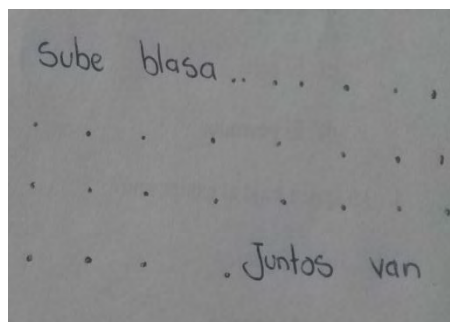 Sube blasa........
. . . . . . . .
. . . . . . . .
. . . . Juntos van